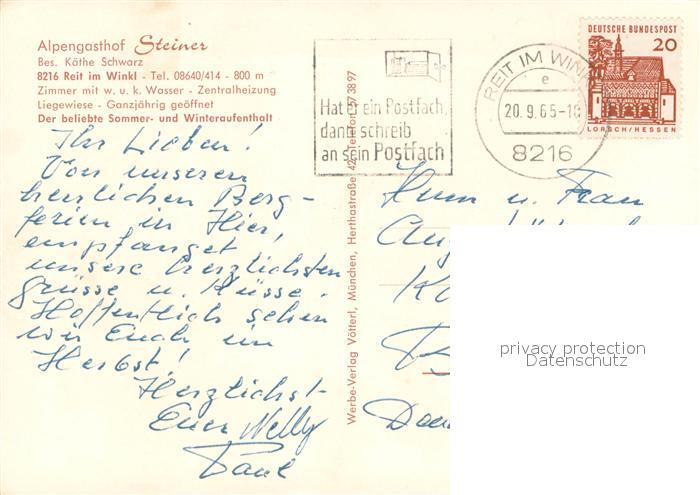 Alpengasthof Steiner
Bes. Käthe Schwarz
8216 Reit im Winkl - Tel. 08640/414 - 800 m
Zimmer mit w. u. k. Wasser - Zentralheizung
Liegewiese - Ganzjährig geöffnet
Der beliebte Sommer- und Winteraufenthalt
Ihr Lieben!
Von unseren
herrlichen Berg-
ferien in Hier,
empfanget
unsere herzlichsten
Grüsse u. Küsse.
Hoffentlich sehen
wir Euch im
Herbst!
Herzlichst
Euer Nelly
Paul
Werbe-Verlag Vötterl, München, Herthastraße 42, Telefon 57 38 97
Hat er ein Postfach,
dann schreib
an sein Postfach
REIT IM WINKL
e
20.9.65-18
8216
DEUTSCHE BUNDESPOST
20
LORSCH/HESSEN
Herrn u. Frau
privacy protection
Datenschutz